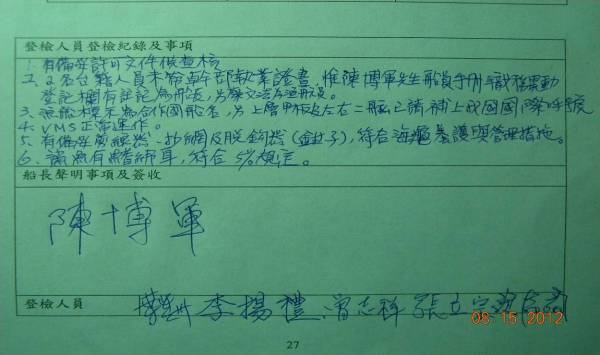 登檢人員登檢紀錄及事項
1. 有備妥許可文件供查核
2. 2名台籍人員未領幹部執業證書，惟陳博軍先生船員手冊與職務異動
登記欄有註記為船長，另 為 船員。
3. 船艏標示為合作國船名，另上層甲板及左右二舷已請補上我國國際呼號
4. VMS正常運作。
5. 有備妥 繩器、抄網及脫鉤器(金丑子)，符合海龜養護與管理措施。
6. 鯊魚有鰭綁身，符合5%規定。
船長聲明事項及簽收
陳博軍
登檢人員
李揚禮 曾志祥 張立
08.15.2012
27